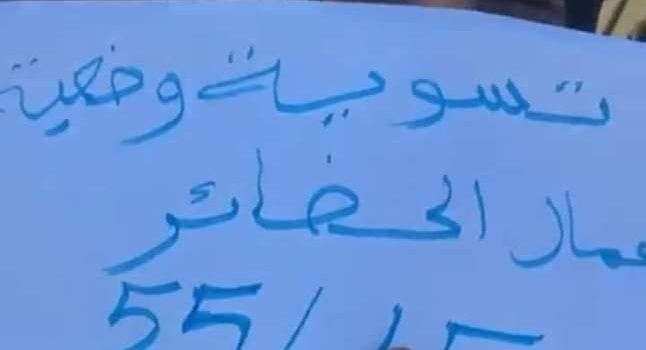 تسوية وضعية
عمال الحضائر
55/45